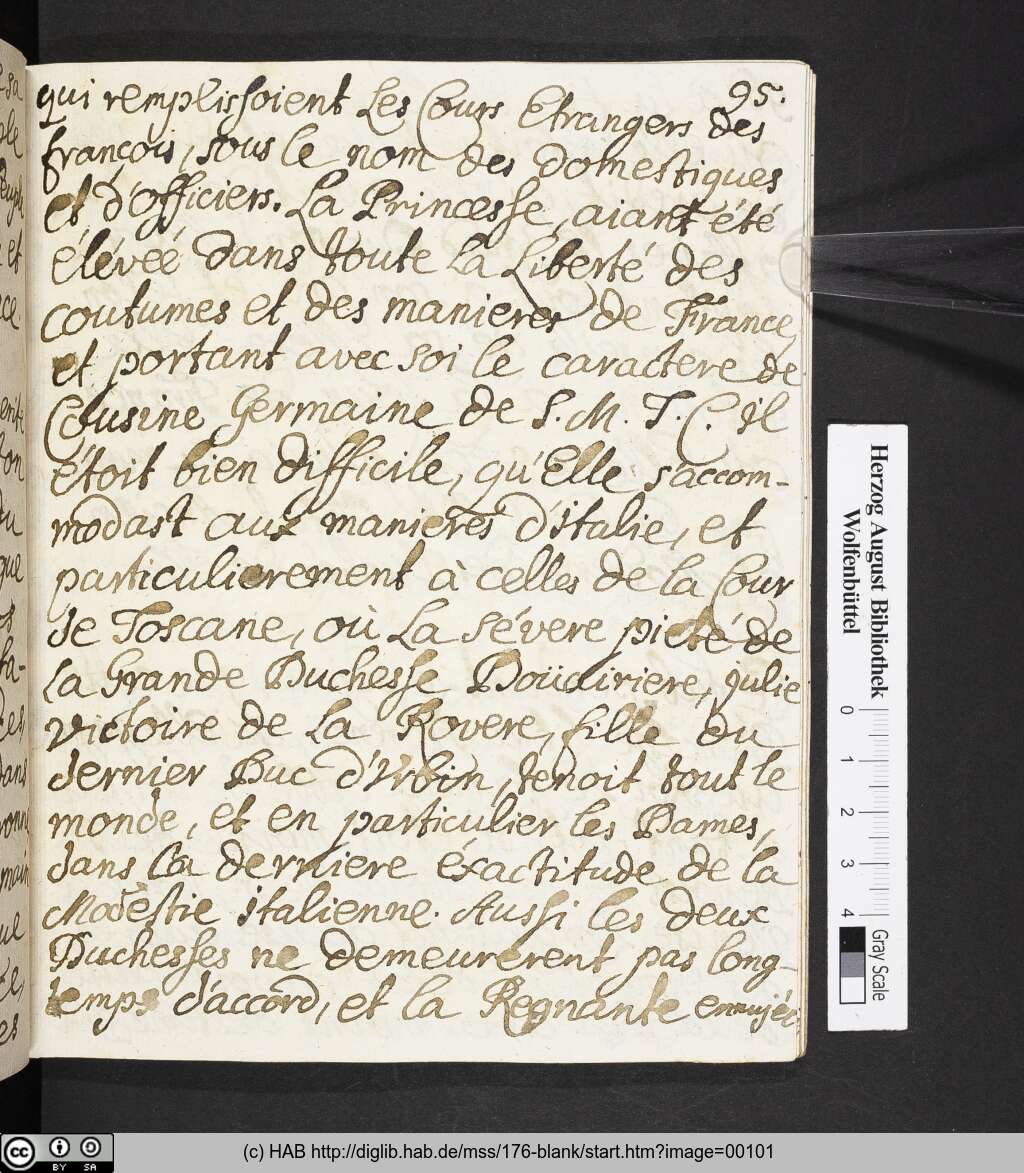 95.
qui remplissoient Les Cours Etrangers des
françois, sous le nom des Domestiques
et d'officiers. La Princesse, aiant été
élévéé dans toute La Liberté des
coutumes et des manieres de France,
et portant avec soi le caractere de
Cousine Germaine de S. M. T. C. il
étoit bien difficile, qu'Elle s'accom-
modast aux manieres d'Italie, et
particulierement à celles de la Cour
de Toscane, où La sévere pieté de
la Grande Duchesse Doüairiere, Julie
victoire de La Rovere, fille du
dernier Duc d'Urbin, tenoit tout le
monde, et en particulier les Dames,
dans la derniere éxactitude de la
Modestie italienne. Aussi les deux
Duchesses ne demeurerent pas long-
temps d'accord, et la Regnante ennujée
Herzog August Bibliothek
Wolfenbüttel
0 1 2 3 4
Gray Scale
(c) HAB http://diglib.hab.de/mss/176-blank/start.htm?image=00101
cc BY SA